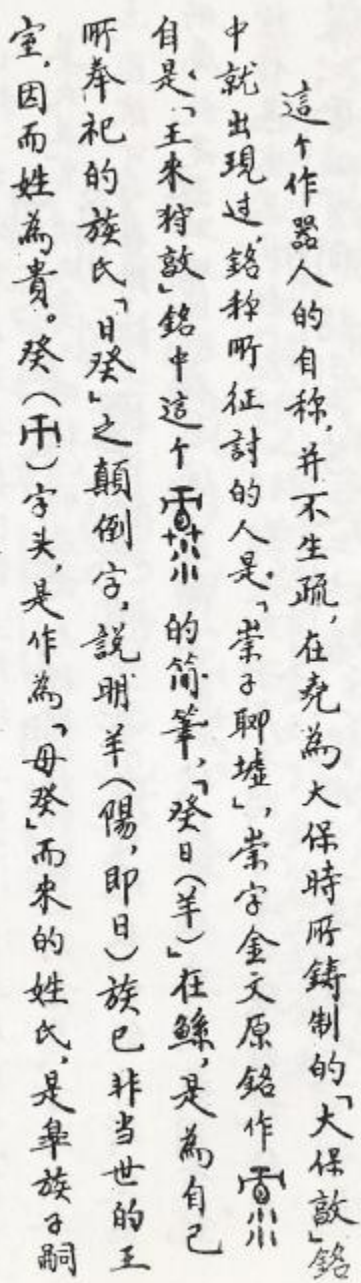 這个作器人的自称,并不生疏,在尭為大保時所鋳制的「大保敦」銘
中就出現过,銘称所征討的人是:「祟子耶墟」,祟字金文原銘作
自是:「王来狩敦」銘中這个 的简筆,「癸日(羊)」在鯀,是為自己
所奉祀的族氏「日癸」之顛倒字,説明羊(陽,即日)族已非当世的王
室,因而姓為貴。癸()字头,是作為「母癸」而来的姓氏,是皋族子嗣